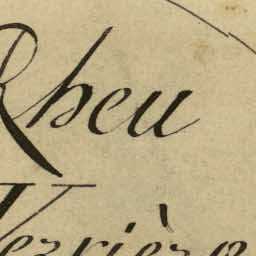 Rheu
Verrière